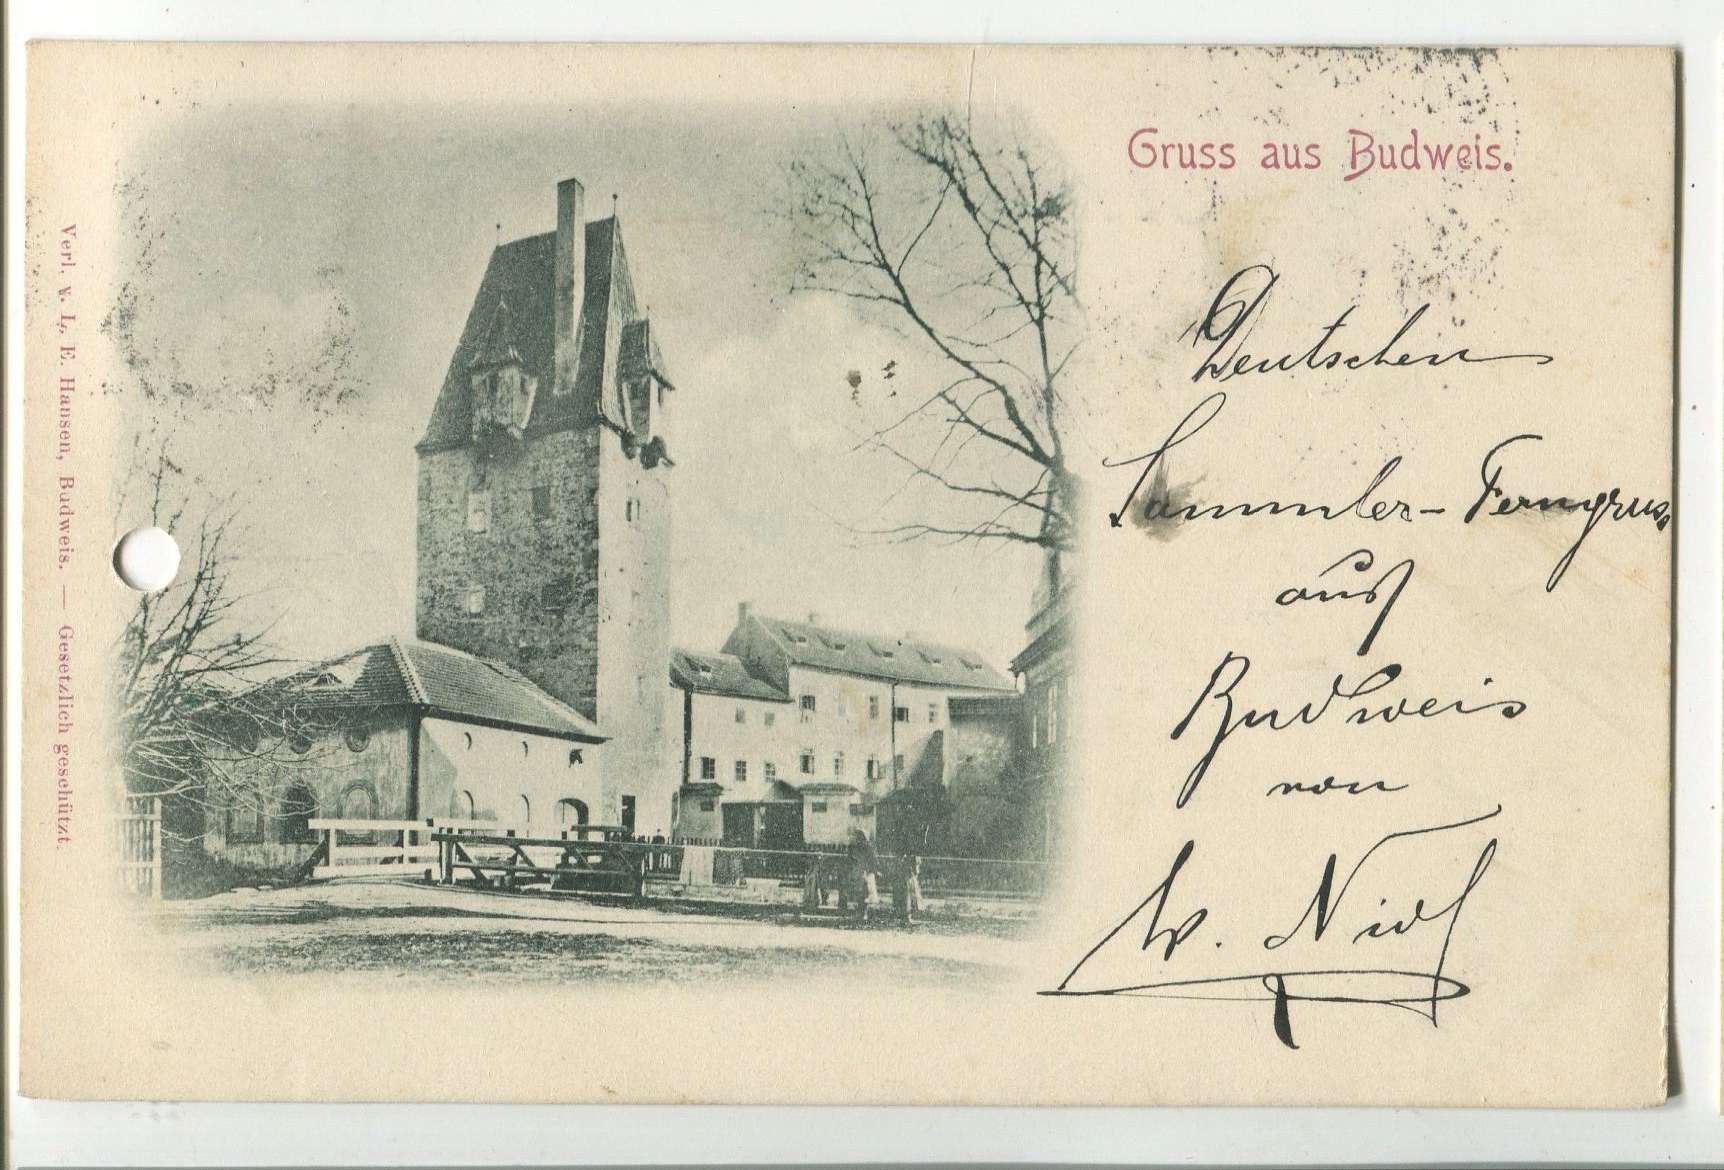 Gruss aus Budweis.
Deutschen
Sammler-Ferngruss
aus
Budweis
von
W. Nidl
Verl. v. L. E. Hansen, Budweis. — Gesetzlich geschützt.